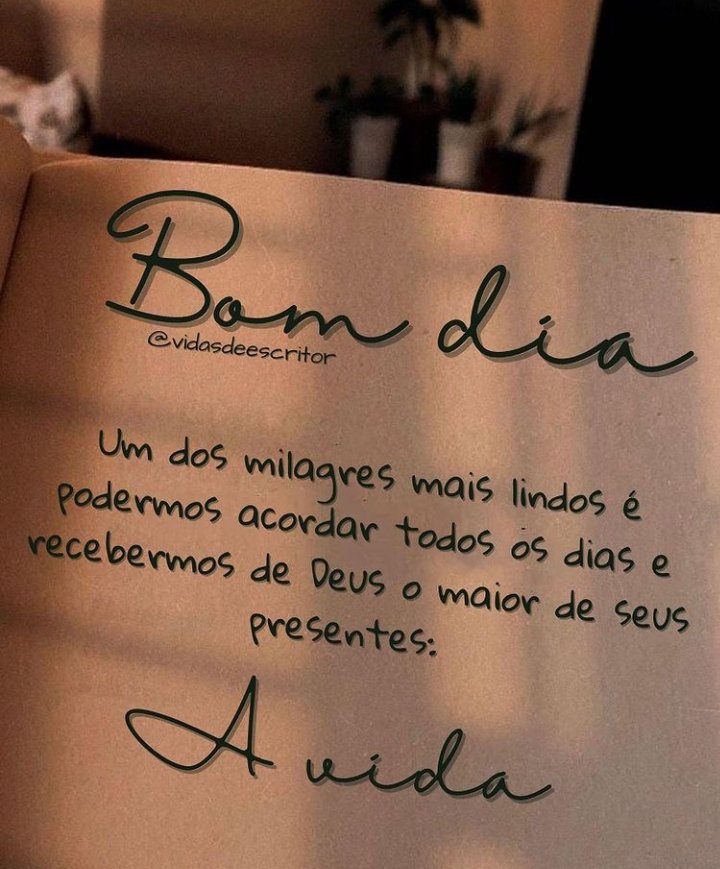 Bom dia
@vidasdeescritor
Um dos milagres mais lindos é
podermos acordar todos os dias e
recebermos de Deus o maior de seus
presentes:
A vida